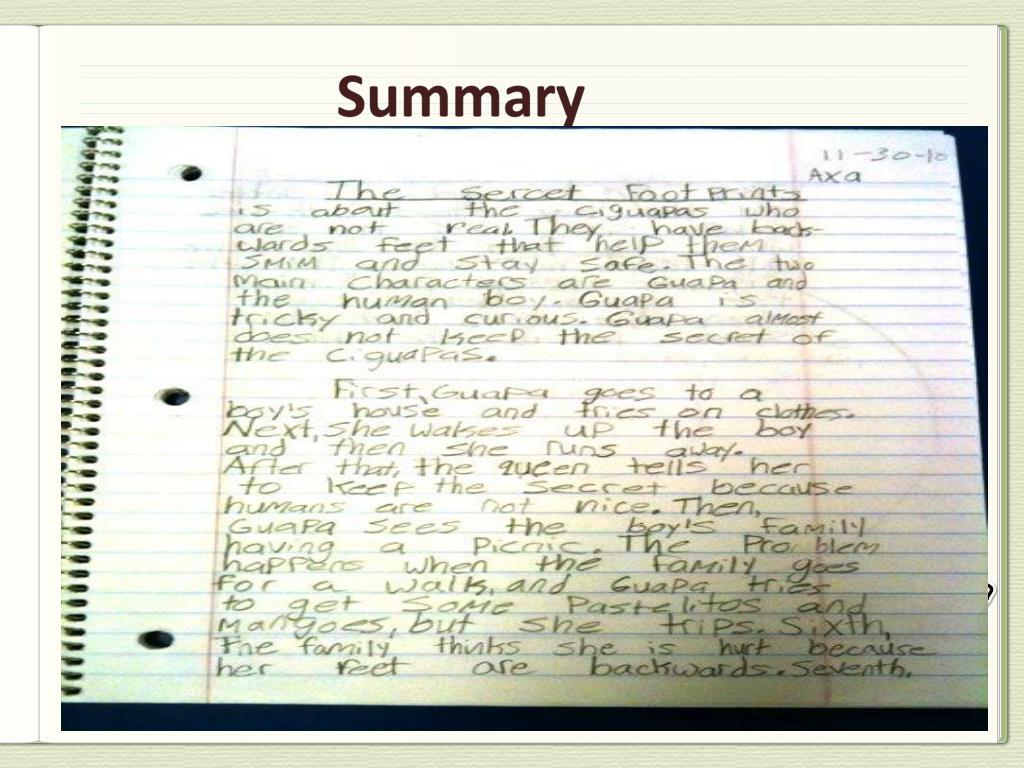 Summary
11-30-10
Axa
The Sercet Foot Prints
is about the ciguapas who
are not real. They have back-
wards feet that help them
swim and stay safe. The two
main characters are Guapa and
the human boy. Guapa is
tricky and curious. Guapa almost
does not keep the secret of
the ciguapas.
First, Guapa goes to a
boy's house and tries on clothes.
Next, she wakes up the boy
and then she runs away.
After that, the queen tells her
to keep the secret because
humans are not nice. Then,
Guapa sees the boy's family
having a picnic. The Problem
happens when the family goes
for a walk, and Guapa tries
to get some Pastelitos and
mangoes, but she trips. Sixth,
The family thinks she is hurt because
her feet are backwards. Seventh.